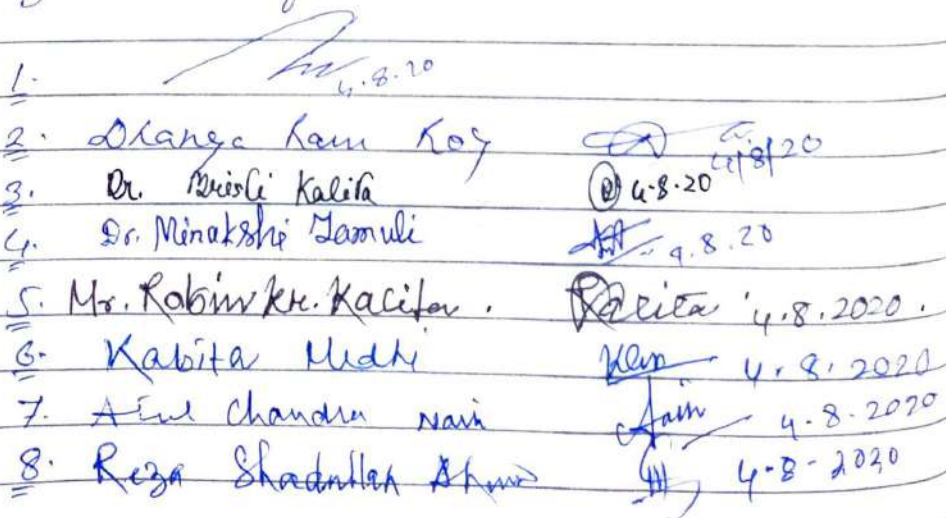 1. 4.8.20
2. Ram Roy 4/8/20
3. Dr. Kalita 4.8.20
4. Dr. Minakshi Jamuli 4.8.20
5. Mr. Robin Kr. Kalita. Kalita 4.8.2020.
6. Kabita Medhi 4.8.2020
7. Chandra Nain 4.8.2020
8. Reza Shadullah Ahmed 4-8-2020